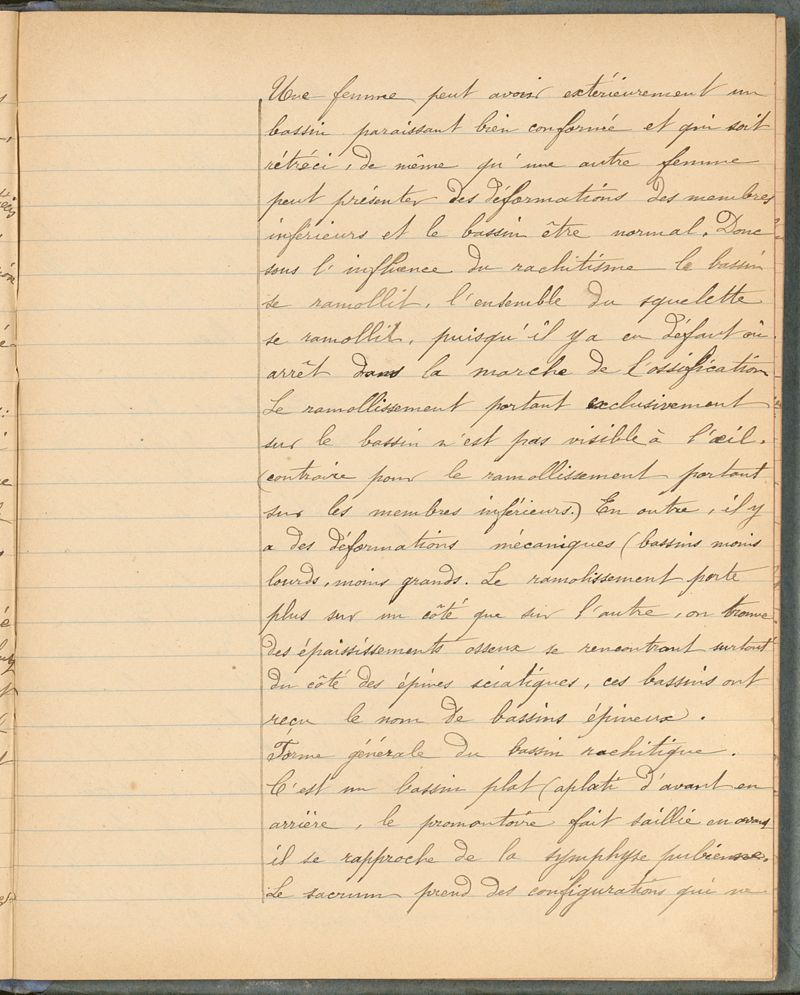 Une femme peut avoir extérieurement un
bassin paraissant bien conformé et qui soit
rétréci, de même qu'une autre femme
peut présenter des déformations des membres
inférieurs et le bassin être normal. Donc
sous l'influence du rachitisme le bassin
se ramollit, l'ensemble du squelette
se ramollit, puisqu'il y a eu défaut ou
arrêt dans la marche de l'ossification
Le ramollissement portant exclusivement
sur le bassin n'est pas visible à l'œil.
(contraire pour le ramollissement portant
sur les membres inférieurs.) En outre, il y
a des déformations mécaniques (bassins moins
lourds, moins grands. Le ramolissement porte
plus sur un côté que sur l'autre, on trouve
des épaississements osseux se rencontrant surtout
du côté des épines sciatiques, ces bassins ont
reçu le nom de bassins épineux.
Forme générale du bassin rachitique.
C'est un bassin plat (aplati d'avant en
arrière, le promontoire fait saillie en avant
il se rapproche de la symphyse pubienne.
Le sacrum prend des configurations qui ne